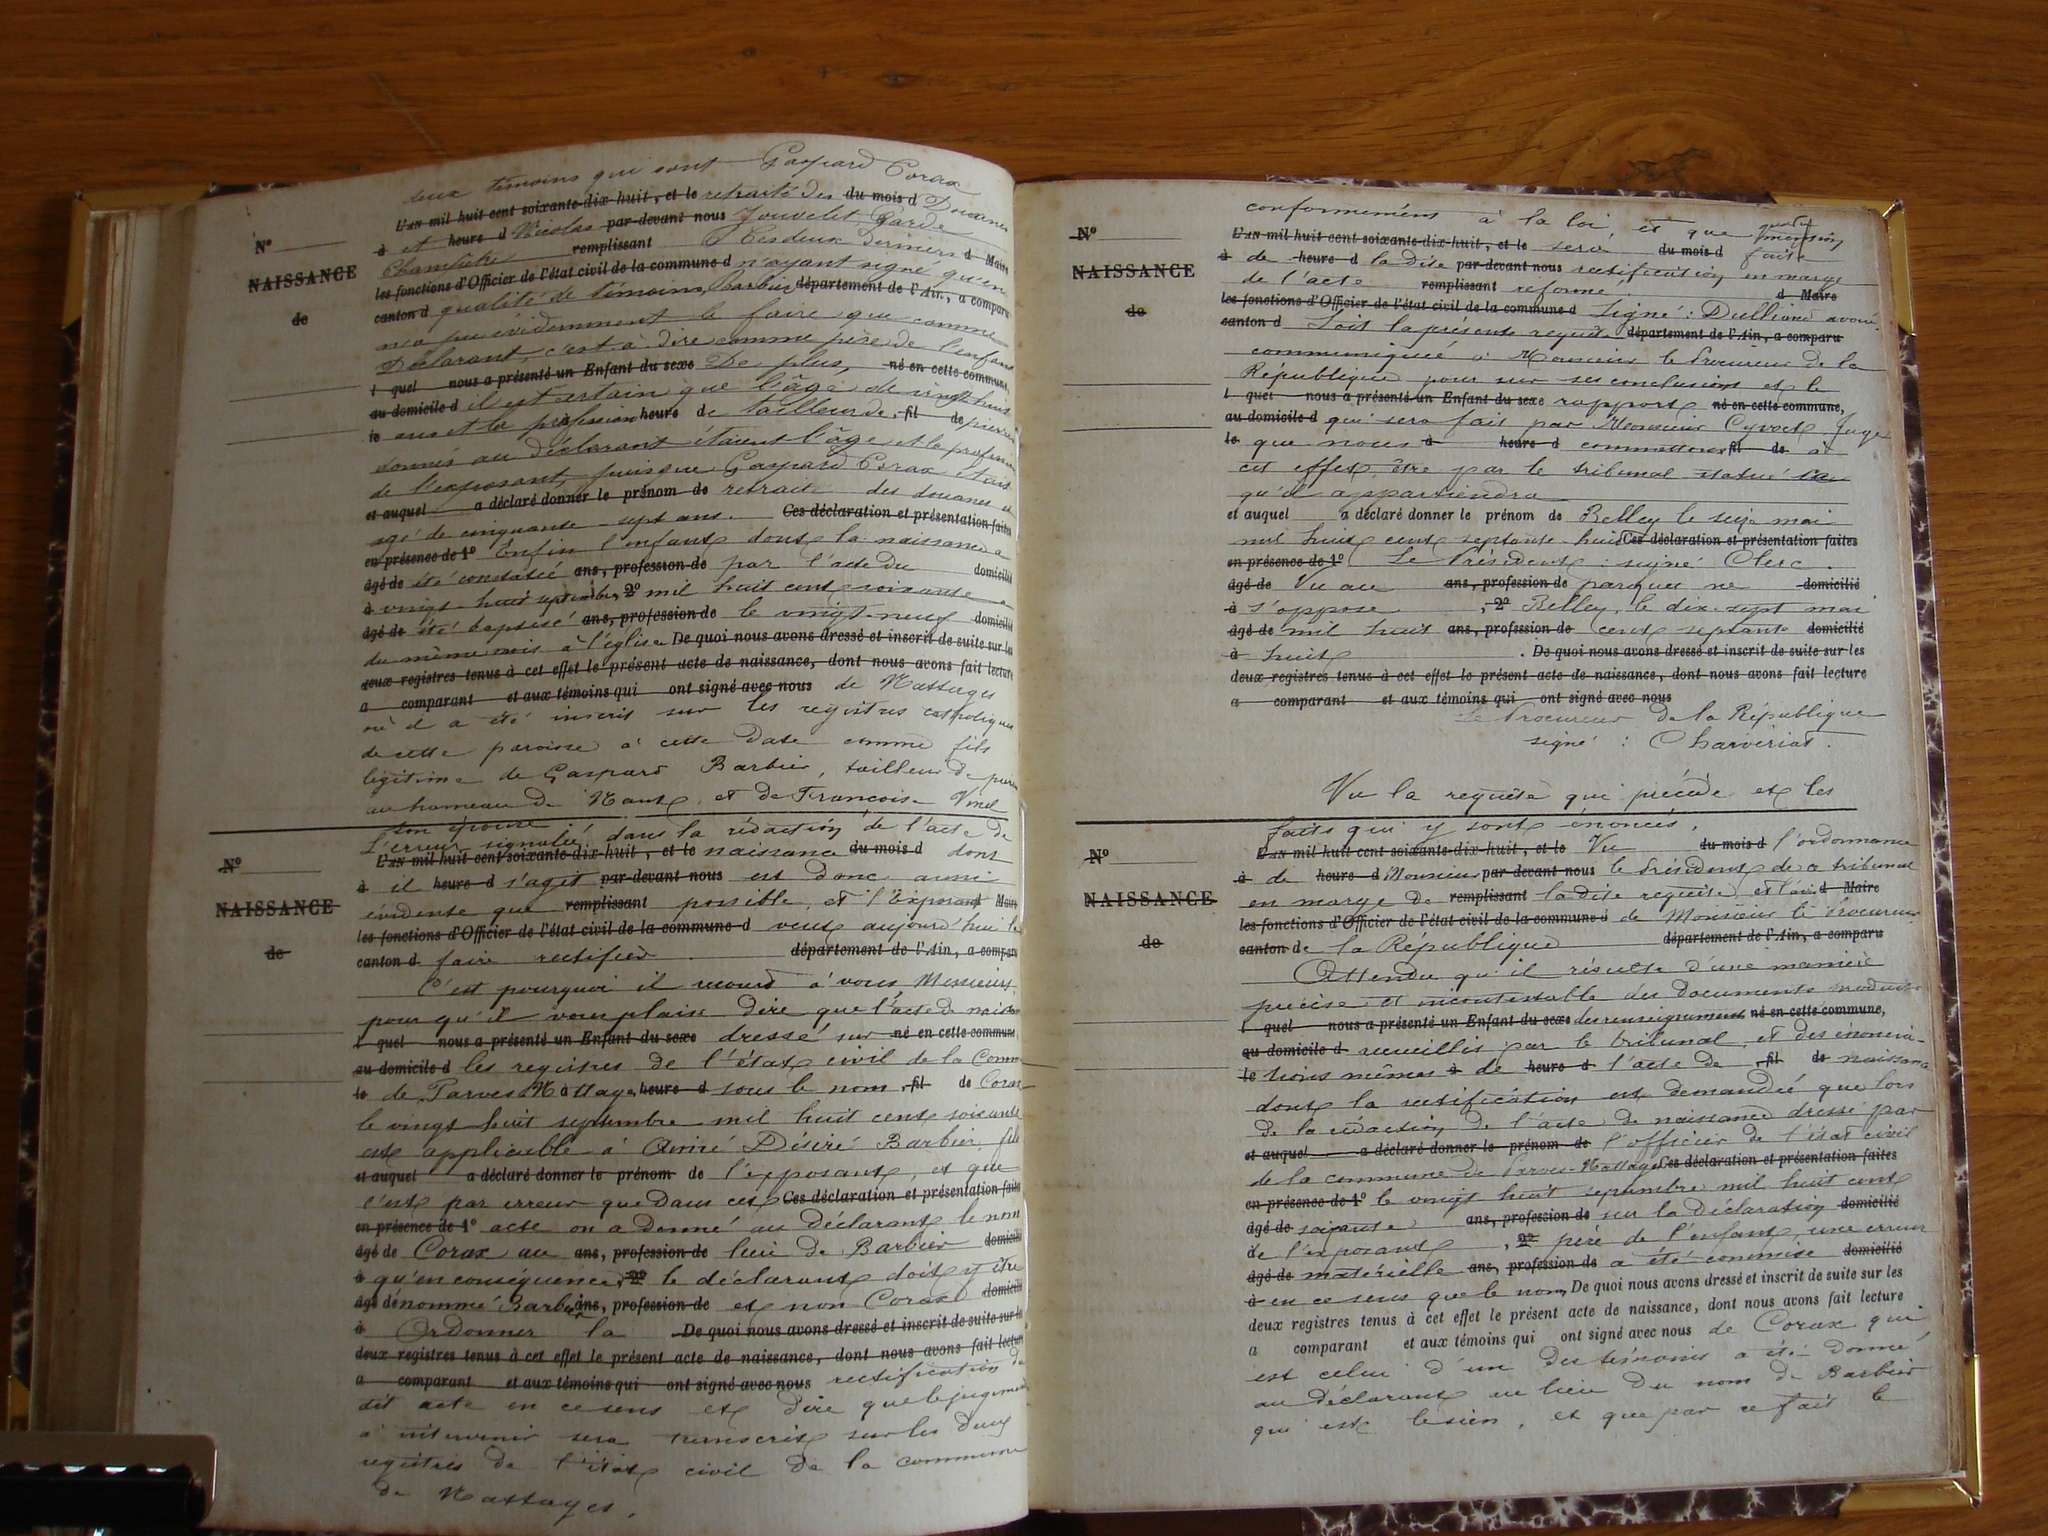 deux témoins qui sont Gaspard Corax
L'AN mil huit cent soixante-dix-huit, et le retraité des du mois d Douanes
N° à et heure d Nicolas par-devant nous Jouvelet Garde
Champêtre remplissant Ces deux derniers d Maire
NAISSANCE les fonctions d'Officier de l'état civil de la commune d n'ayant signé qu'en
canton d qualité de témoins, Barbier département de l'Ain, a comparu
de n'a pu évidemment le faire que comme
Déclarant, c'est à dire comme père de l'enfant
l quel nous a présenté un Enfant du sexe De plus, né en cette commune,
au domicile d il est certain que l'âge de vingt huit
le ans et la profession heure de tailleur de fil de pierres
donnés au déclarant étaient l'âge et la profession
de l'exposant, puisque Gaspard Corax était
et auquel a déclaré donner le prénom de retraité des douanes et
agé de cinquante-sept ans. Ces déclaration et présentation faites
en présence de 1° Enfin l'enfant dont la naissance a
âgé de été constatée ans, profession de par l'acte du domicilié
à vingt-huit septembre, 2° mil huit cent soixante a
âgé de été baptisé ans, profession de le vingt-neuf domicilié
du même mois à l'église De quoi nous avons dressé et inscrit de suite sur les
deux registres tenus à cet effet le présent acte de naissance, dont nous avons fait lecture
a comparant et aux témoins qui ont signé avec nous de Nattages
où il a été inscrit sur les registres catholiques
de cette paroisse à cette date comme fils
légitime de Gaspard Barbier, tailleur de pierres
au hameau de Nant, et de Françoise Vinel
son épouse
L'erreur signalée dans la rédaction de l'acte de
N° L'AN mil huit cent soixante-dix-huit, et le naissance du mois d dont
à il heure d s'agit par-devant nous est donc aussi
évidente que remplissant possible, et l'Exposant Maire
NAISSANCE les fonctions d'Officier de l'état civil de la commune d veut aujourd'hui la
de canton d faire rectifier. département de l'Ain, a comparu
C'est pourquoi il recourt à vous, Messieurs
pour qu'il vous plaise dire que l'acte de naissance
l quel nous a présenté un Enfant du sexe dressé sur né en cette commune,
au domicile d les registres de l'état civil de la Commune
le de Parves Nattages heure d sous le nom fil de Corax
le vingt huit septembre mil huit cent soixante
est applicable à Aimé Désiré Barbier fils
et auquel a déclaré donner le prénom de l'exposant, et que
c'est par erreur que dans cet Ces déclaration et présentation faites
en présence de 1° acte on a donné au déclarant le nom
âgé de Corax au ans, profession de lieu de Barbier domicilié
à qu'en conséquence, 2° le déclarant doit y être
âgé de nommé Barbier ans, profession de et non Corax domicilié
à Ordonner la De quoi nous avons dressé et inscrit de suite sur les
deux registres tenus à cet effet le présent acte de naissance, dont nous avons fait lecture
a comparant et aux témoins qui ont signé avec nous rectification du
dit acte en ce sens et dire que le jugement
à intervenir sera transcrit sur les deux
registres de l'état civil de la commune
de Nattages.
conformément à la loi, et que quelle
mention
N° L'AN mil huit cent soixante-dix-huit, et le sera du mois d faite
à de heure d la dite par-devant nous rectification en marge
NAISSANCE de l'acte remplissant réformé. d Maire
les fonctions d'Officier de l'état civil de la commune d Signé: Dulliand avoué.
de canton d Soit la présente requête département de l'Ain, a comparu
communiquée à Monsieur le Procureur de la
République pour sur ses conclusions et le
l quel nous a présenté un Enfant du sexe rapport né en cette commune,
au domicile d qui sera fait par Monsieur Cyvoct Juge
le que nous à heure d commettons fil de à
cet effet, être par le tribunal statué ce
qu'il appartiendra
et auquel a déclaré donner le prénom de Belley le seize mai
mil huit cent septante-huit Ces déclaration et présentation faites
en présence de 1° Le Président: signé Clerc.
âgé de Vu au ans, profession de parquet ne domicilié
à s'oppose , 2° Belley, le dix-sept mai
âgé de mil huit ans, profession de cent septante domicilié
à huit . De quoi nous avons dressé et inscrit de suite sur les
deux registres tenus à cet effet le présent acte de naissance, dont nous avons fait lecture
a comparant et aux témoins qui ont signé avec nous
Le Procureur de la République
signé: Charvériat.
Vu la requête qui précède et les
faits qui y sont énoncés.
N° L'AN mil huit cent soixante-dix-huit, et le Vu du mois d l'ordonnance
à de heure d Monsieur par devant nous le Président de ce tribunal
en marge de remplissant la dite requête, et l'avis d Maire
NAISSANCE les fonctions d'Officier de l'état civil de la commune d de Monsieur le Procureur
de canton de la République département de l'Ain, a comparu
Attendu qu'il résulte d'une manière
précise et incontestable des documents produits
l quel nous a présenté un Enfant du sexe des renseignements né en cette commune,
au domicile d recueillis par le tribunal et des énoncia-
le tions mêmes à de heure d l'acte de fil de naissance
dont la rectification est demandée que lors
de la rédaction de l'acte de naissance dressé par
et auquel a déclaré donner le prénom de l'officier de l'état civil
de la commune de Parves-Nattages Ces déclaration et présentation faites
en présence de 1° le vingt huit septembre mil huit cent
âgé de soixante ans, profession de sur la déclaration domicilié
de l'exposant , 2° père de l'enfant, une erreur
âgé de matérielle ans, profession de a été commise domicilié
à en ce sens que le nom De quoi nous avons dressé et inscrit de suite sur les
deux registres tenus à cet effet le présent acte de naissance, dont nous avons fait lecture
a comparant et aux témoins qui ont signé avec nous de Corax qui
est celui d'un des témoins a été donné
au déclarant au lieu du nom de Barbier
qui est le sien, et que par ce fait le